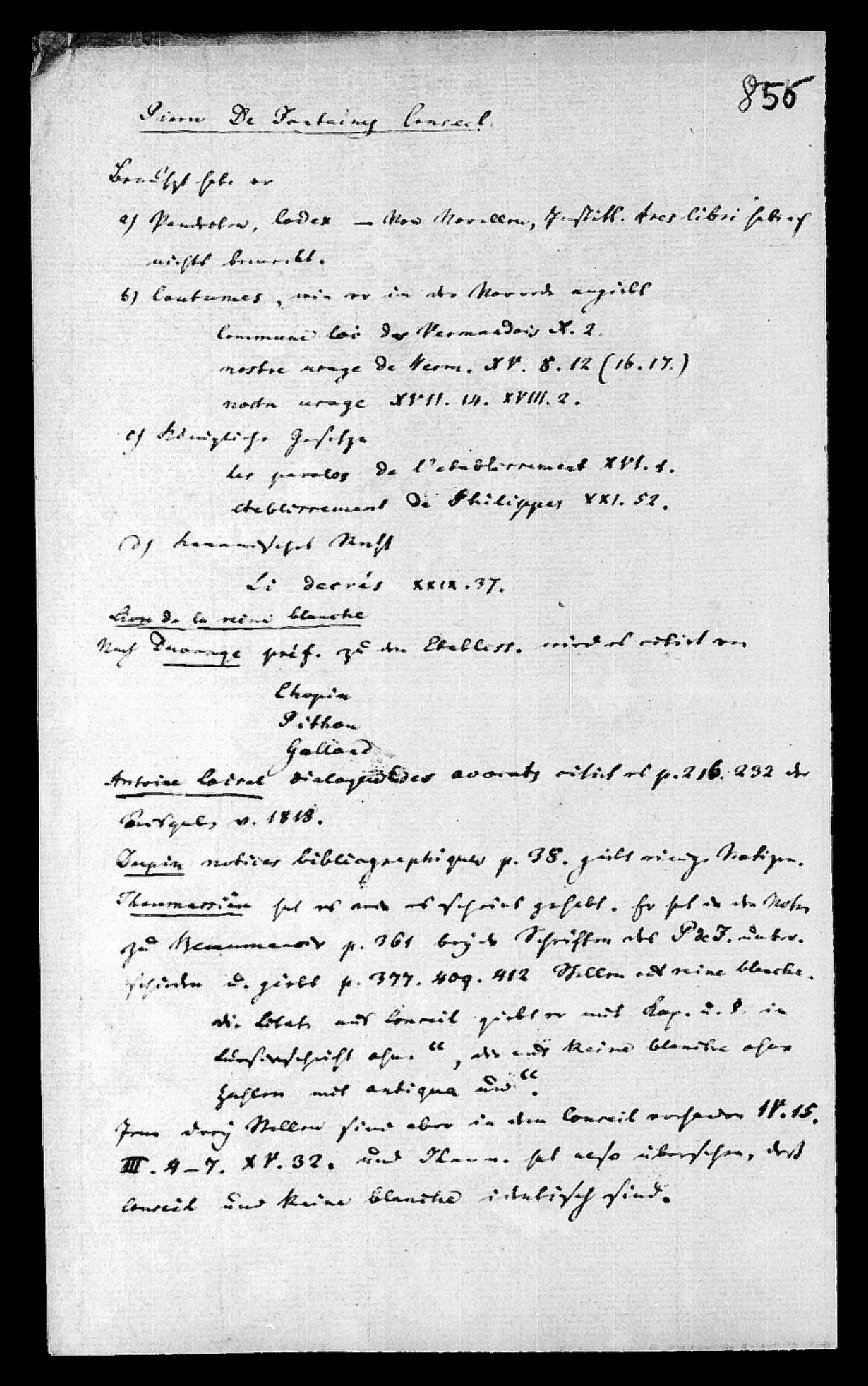 856
Pierre De Fontaines Conseil.
Benutzt habe er
a) Pandecten, Codex — Von Novellen, Institt. tres libri habe ich
nichts bemerkt.
b) Coutumes, wie er in der Vorrede angiebt
commune loi de Vermandois X. 2.
nostre usage de Verm. XV. 8. 12 (16. 17.)
nostre usage XVII. 14. XVIII. 2.
c) Königliche Gesetze
les paroles de l'etablissement XVI. 1.
etablissement de Philippes XXI. 52.
d) kanonisches Recht
Li decrés XXIX. 37.
Livre de la reine blanche
Nach Ducange préf. zu den Etabliss. wird es citirt von
Chopin
Pithou
Galland
Antoine Loisel dialogue des avocats citirt es p. 216. 232 der
Ausgabe v. 1818.
Dupin notices bibliographiques p. 38. giebt einige Notizen.
Thaumassière hat es wie es scheint gehabt. Er hat in den Noten
zu Beaumanoir p. 361 beyde Schriften des P. de F. unter-
schieden u. giebt p. 377. 409. 412 Stellen aus reine blanche.
die Citate aus Conseil giebt er mit Kap. u. §. in
Cursivschrift ohne “, die aus Reine blanche ohne
Zahlen mit antiqua und “.
Jene drey Stellen sind aber in dem Conseil vorhanden IV. 15.
III. 4-7. XV. 32. und Thaum. hat also übersehen, daß
Conseil und Reine blanche identisch sind.